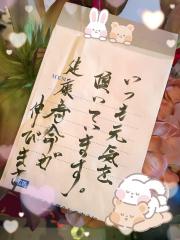 いつも元気を
頂いています。
健康寿命が
伸びます